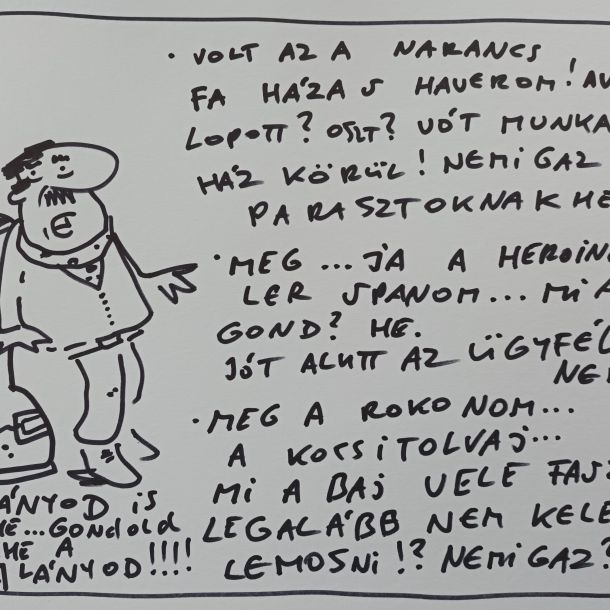 • VOLT AZ A NARANCS
FA HÁZAS HAVEROM! AV
LOPOTT? OSZT? VÓT MUNKA
HÁZ KÖRÜL! NEMIGAZ
PARASZTOKNAK HE
• MEG ... JA A HEROIN
LER SPANOM... MI A
GOND? HE.
JÓT ALUTT AZ ÜGYFÉL
NEM
• MEG A ROKONOM...
A KOCSITOLVAJ...
MI A BAJ VELE FASZ
LEGALÁBB NEM KELE
LEMOSNI!? NEMIGAZ?
ÁNYOD IS
HE...GONDOLD
HE A
LÁNYOD!!!!